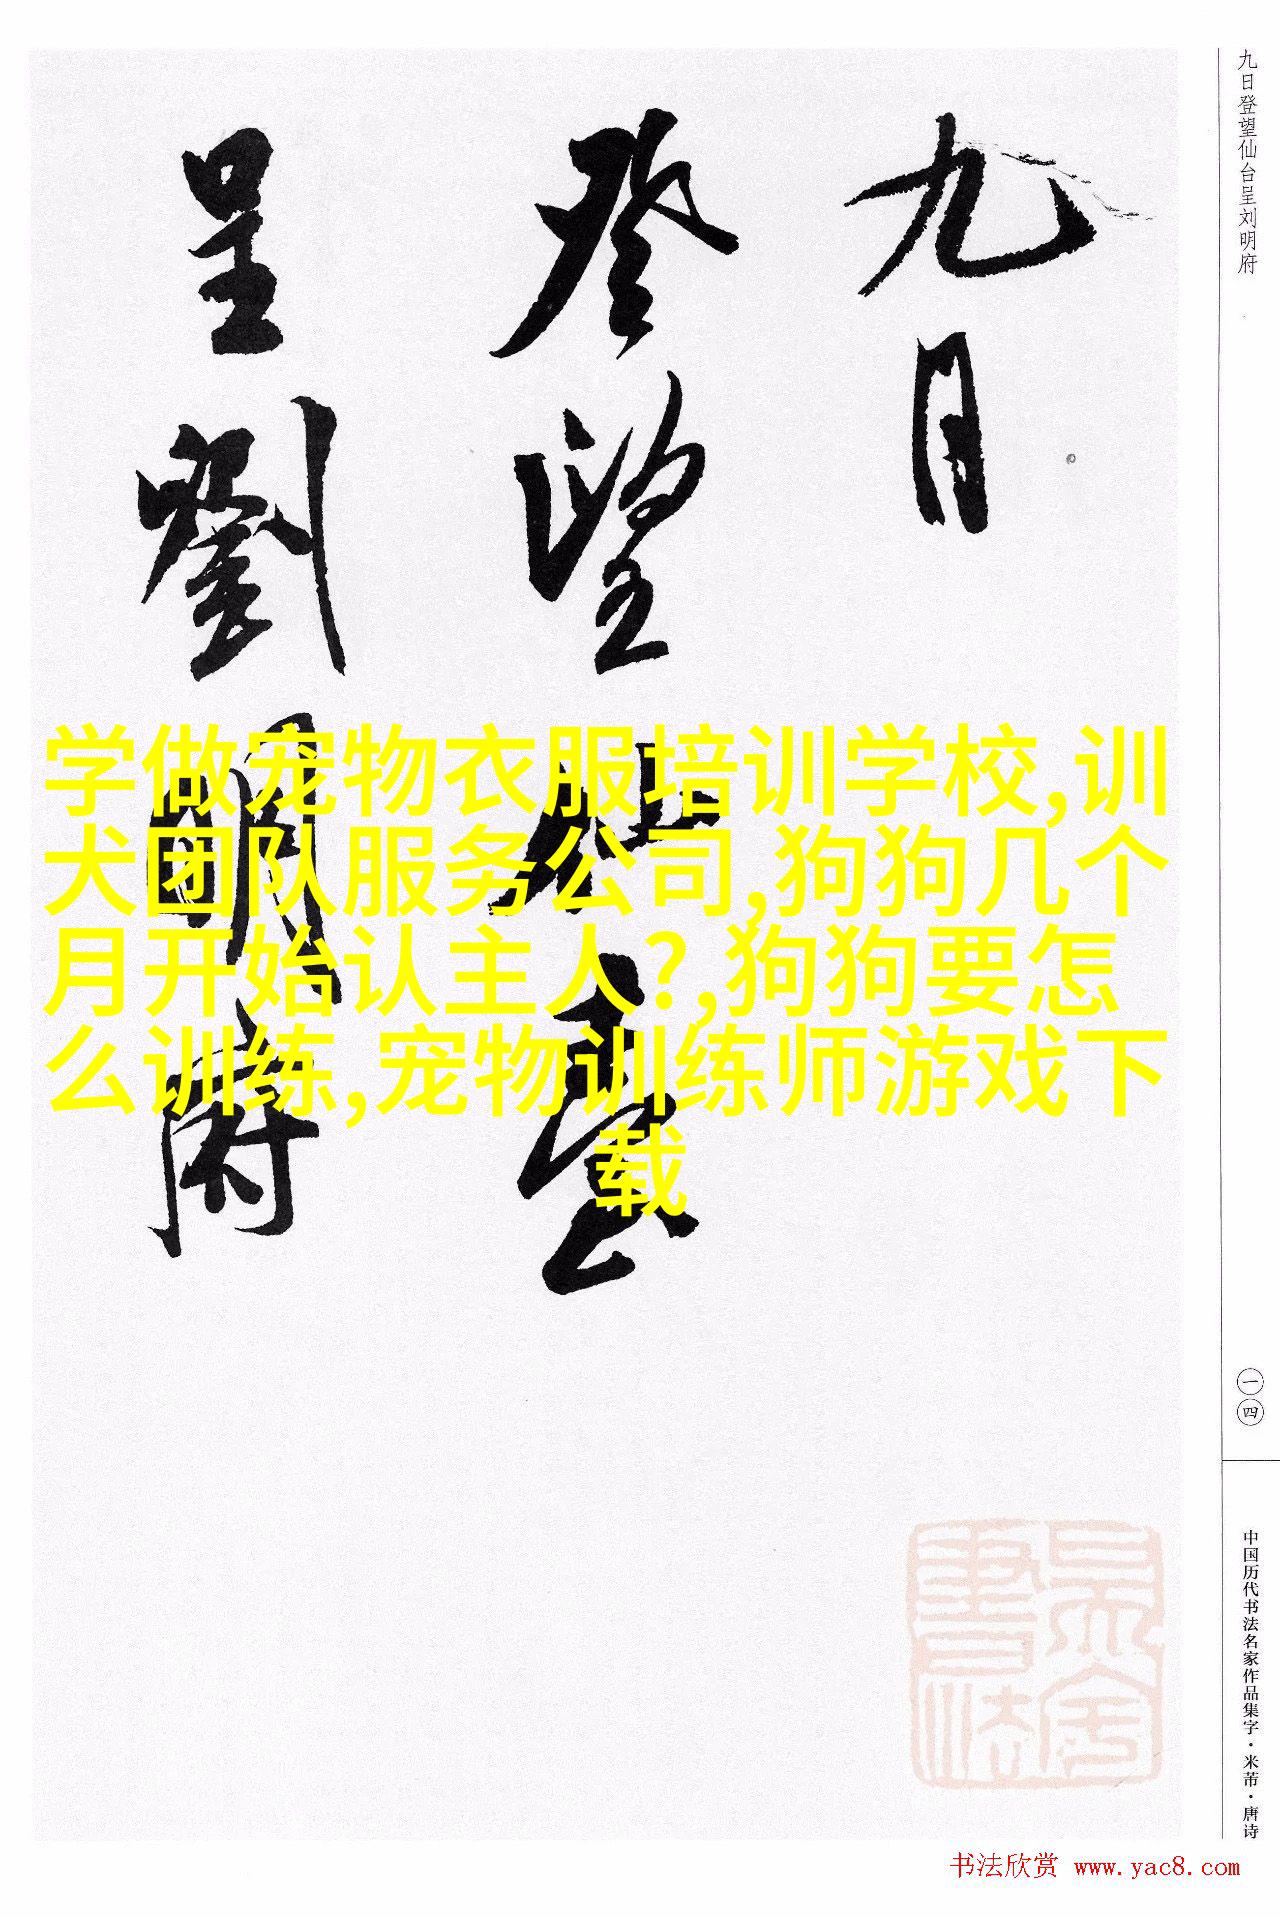 九日
登望仙台
呈劉明府
九日登望仙台呈刘明府
一四
中国历代书法名家作品集字·米芾·唐诗
学做宠物衣服培训学校,训
犬团队服务公司,狗狗几个
月开始认主人?,狗狗要怎
么训练,宠物训练师游戏下
载
书法欣赏 www.yac8.com